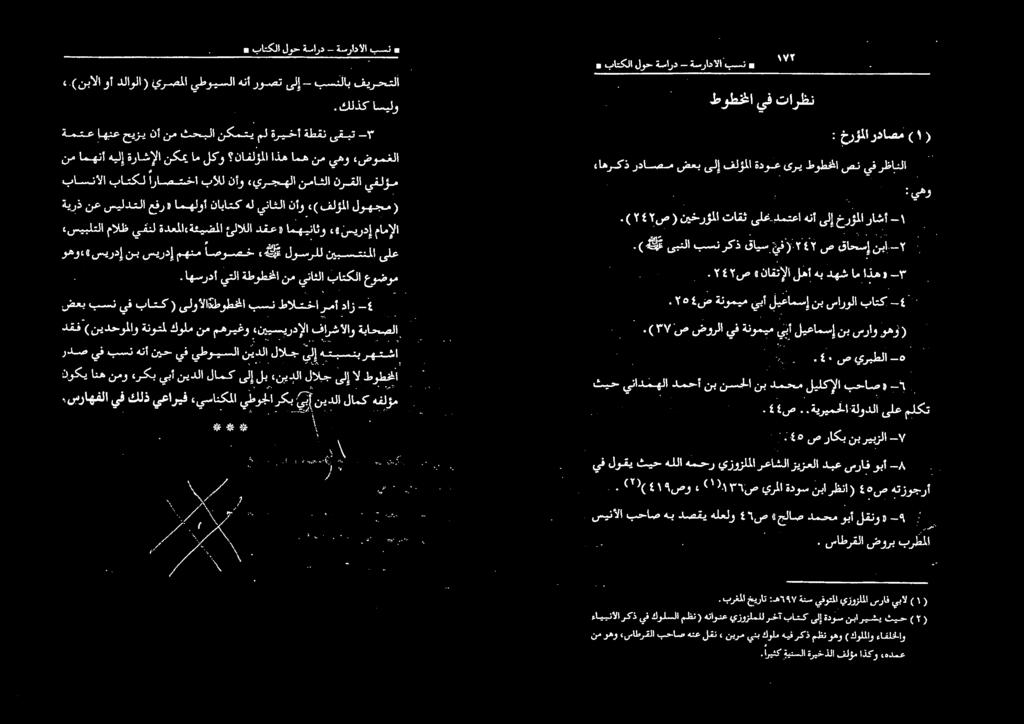 ١٧٢ ■ نسب الأدارسة – دراسة حول الكتاب ■
نظرات في المخطوط
(١) مصادر المؤرخ :
الناظر في نص المخطوط يرى عودة المؤلف إلى بعض مصادر ذكرها،
وهي:
١– أشار المؤرخ إلى أنه اعتمد على ثقات المؤرخين (ص٢٤٢).
٢– ابن إسحاق ص ٢٤٢ (في سياق ذكر نسب النبي ﷺ).
٣– «هذا ما شهد به أهل الإتقان» ص٢٤٢.
٤– كتاب الوراس بن إسماعيل أبي ميمونة ص٢٥٤.
(وهو وارس بن إسماعيل أبي ميمونة في الروض ص ٣٧).
٥– الطبري ص ٤٠.
٦– «صاحب الإكليل محمد بن الحسن بن أحمد الهمداني حيث
تكلم على الدولة الحميرية.. ص٤٤.
٧– الزبير بن بكار ص ٤٥.
٨– أبو فارس عبد العزيز الشاعر الملزوزي رحمه الله حيث يقول في
أرجوزته ص٤٥ (انظر ابن سودة المري ص١٣٦(١)، وص٤١٩)(٢).
٩– «ونقل أبو محمد صالح» ص٤٦ ولعله يقصد به صاحب الأنيس
المطرب بروض القرطاس.
(١) لأبي فارس الملزوزي المتوفي سنة ٦٩٧هـ: تاريخ المغرب.
(٢) حيث يشير ابن سودة إلى كتاب آخر للملزوزي عنوانه (نظم السلوك في ذكر الأنبياء
والخلفاء والملوك) وهو نظم ذكر فيه ملوك بني مرين، نقل عنه صاحب القرطاس، وهو من
عمده، وكذا مؤلف الذخيرة السنية كثيراً.
■ نسب الأدارسة – دراسة حول الكتاب ■
التحريف بالنسب – إلى تصور أنه السيوطي المصري (الوالد أو الابن)،
وليسا كذلك.
٣– تبقى نقطة أخيرة لم يتمكن البحث من أن يزيح عنها عتمة
الغموض، وهي من هما هذا المؤلفان؟ وكل ما يمكن الإشارة إليه أنهما من
مؤلفي القرن الثامن الهجري، وأن للأب اختصاراً لكتاب الأنساب
(مجهول المؤلف)، وأن الثاني له كتابان أولهما «رفع التدليس عن ذرية
الإمام إدريس»، وثانيهما «عقد اللآلئ المضيئة،المعدة لنفي ظلام التلبيس،
على المنتسبين للرسول ﷺ، خصوصاً منهم إدريس بن إدريس»،وهو
موضوع الكتاب الثاني من المخطوطة التي أدرسها.
٤– زاد أمر اختلاط نسب المخطوطة الأولى (كتاب في نسب بعض
الصحابة والأشراف الإدريسيين، وغيرهم من ملوك لمتونة والموحدين) فقد
اشتهر بنسبته إلى جلال الدين السيوطي في حين أنه نسب في صدر
المخطوط لا إلى جلال الدين، بل إلى كمال الدين أبي بكر، ومن هنا يكون
مؤلفه كمال الدين أبي بكر الجوطي المكناسي، فيراعي ذلك في الفهارس.
***